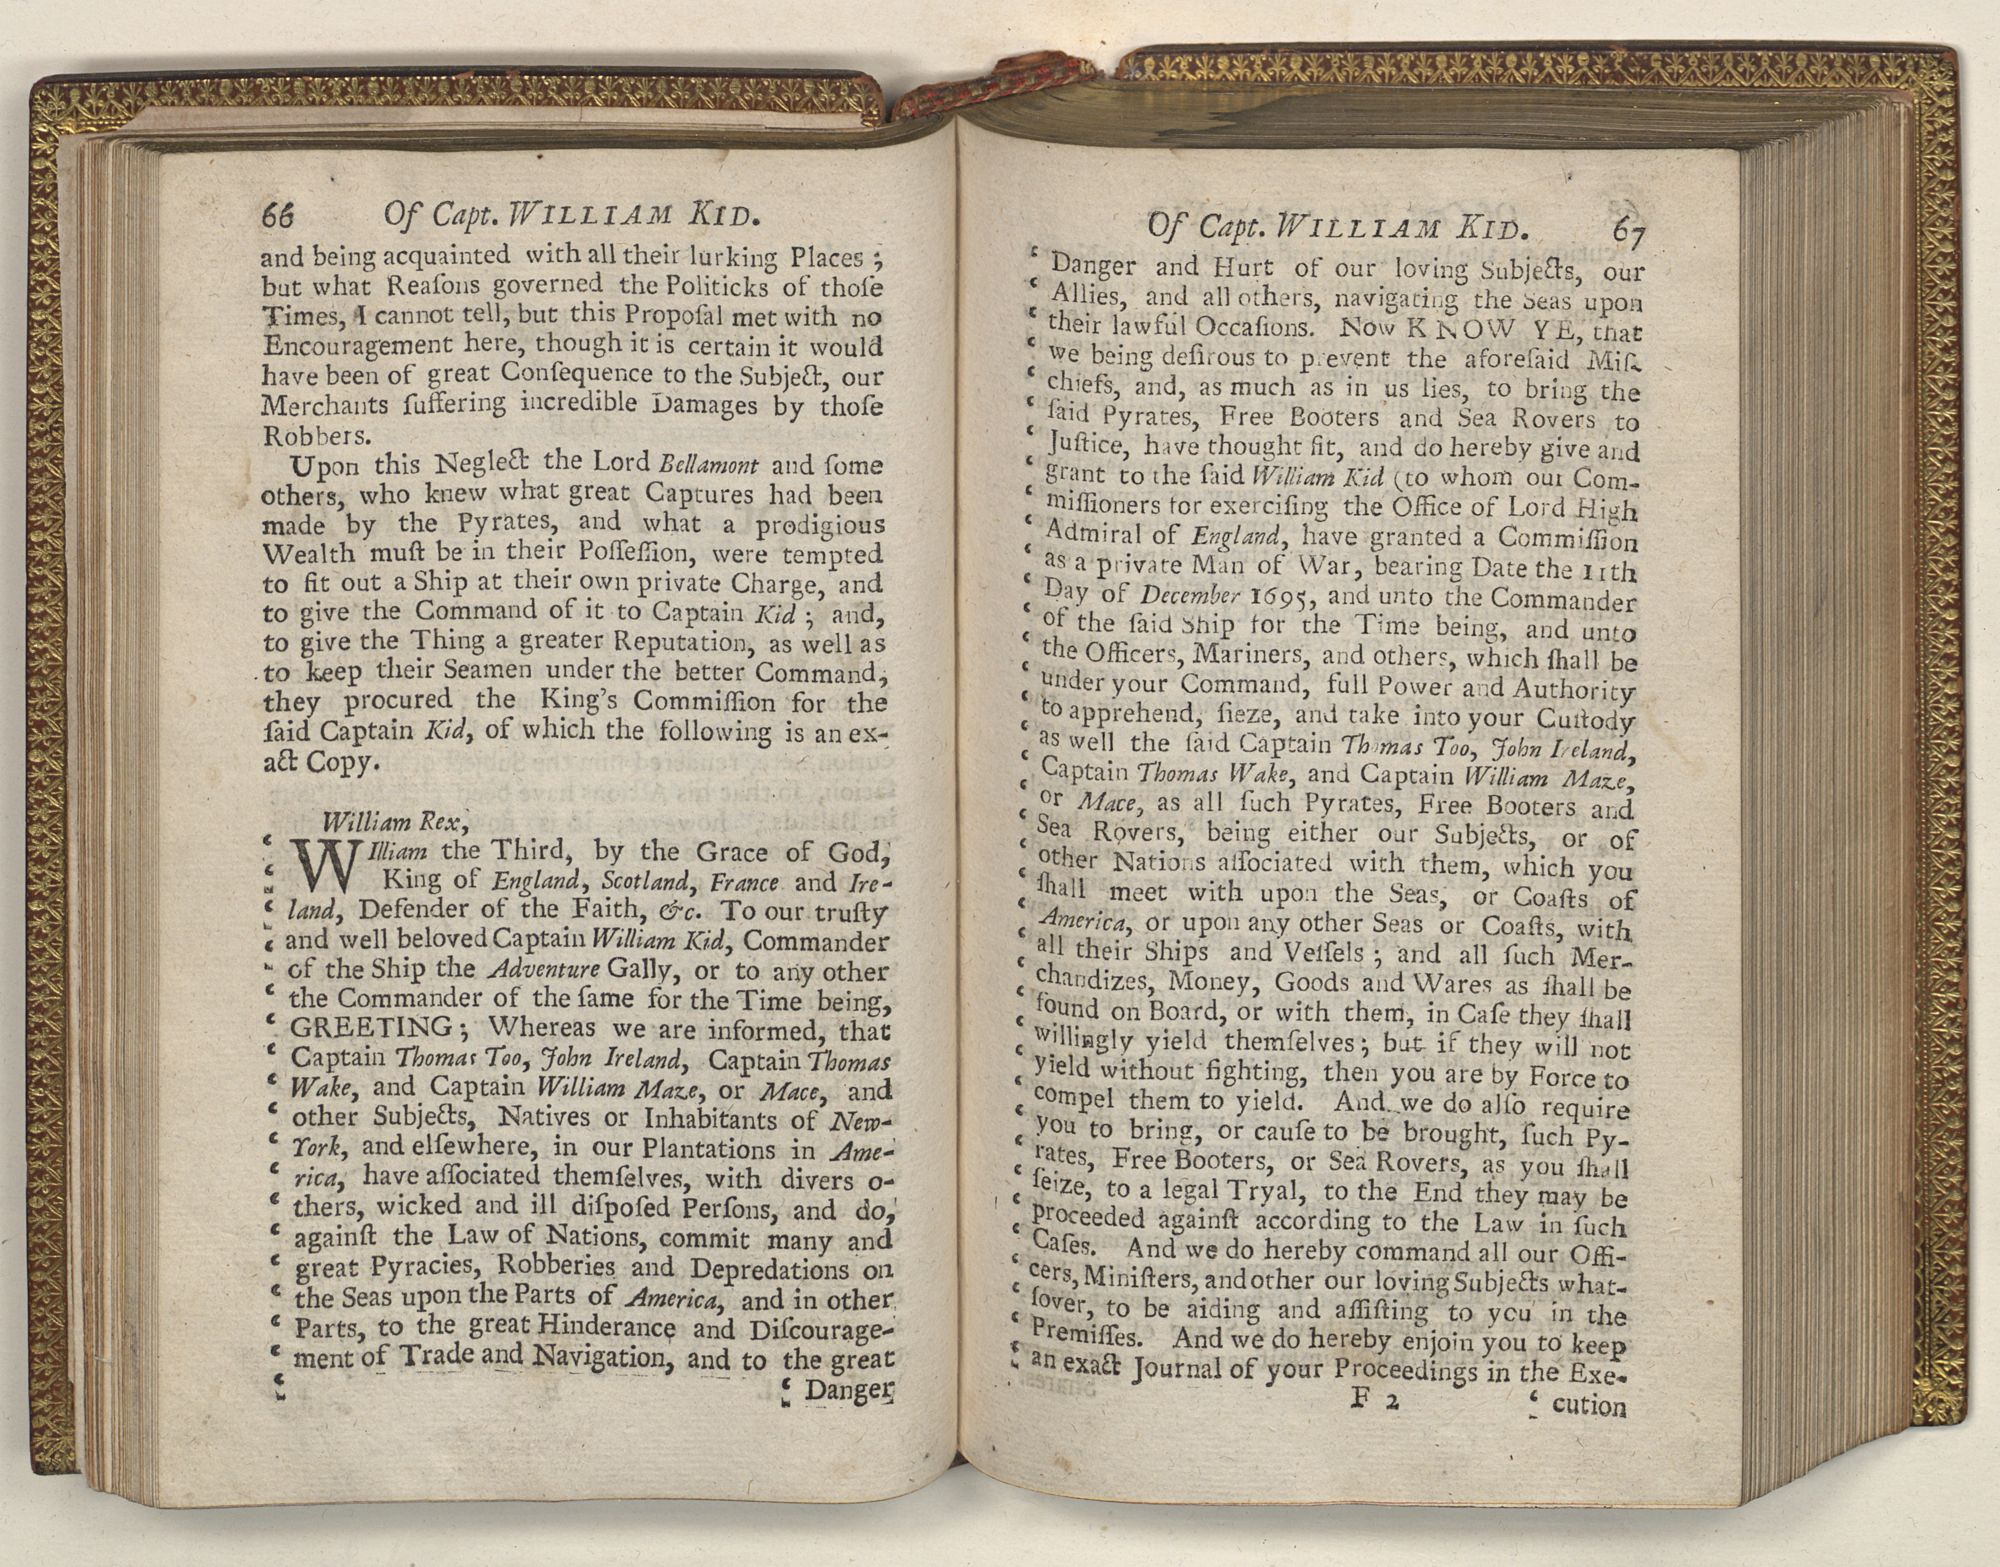 66 Of Capt. WILLIAM KID.
and being acquainted with all their lurking Places ;
but what Reaſons governed the Politicks of thoſe
Times, I cannot tell, but this Propoſal met with no
Encouragement here, though it is certain it would
have been of great Conſequence to the Subject, our
Merchants ſuffering incredible Damages by thoſe
Robbers.
Upon this Neglect the Lord Bellamont and ſome
others, who knew what great Captures had been
made by the Pyrates, and what a prodigious
Wealth muſt be in their Poſſeſſion, were tempted
to fit out a Ship at their own private Charge, and
to give the Command of it to Captain Kid ; and,
to give the Thing a greater Reputation, as well as
to keep their Seamen under the better Command,
they procured the King's Commiſſion for the
ſaid Captain Kid, of which the following is an ex-
act Copy.
William Rex,
‘ WIlliam the Third, by the Grace of God,
‘ King of England, Scotland, France and Ire-
‘ land, Defender of the Faith, &c. To our truſty
‘ and well beloved Captain William Kid, Commander
‘ of the Ship the Adventure Gally, or to any other
‘ the Commander of the ſame for the Time being,
‘ GREETING ; Whereas we are informed, that
‘ Captain Thomas Too, John Ireland, Captain Thomas
‘ Wake, and Captain William Maze, or Mace, and
‘ other Subjects, Natives or Inhabitants of New-
‘ York, and elſewhere, in our Plantations in Ame-
‘ rica, have aſſociated themſelves, with divers o-
‘ thers, wicked and ill diſpoſed Perſons, and do,
‘ againſt the Law of Nations, commit many and
‘ great Pyracies, Robberies and Depredations on
‘ the Seas upon the Parts of America, and in other
‘ Parts, to the great Hinderance and Diſcourage-
‘ ment of Trade and Navigation, and to the great
‘ ‘ Danger
Of Capt. WILLIAM KID. 67
‘ Danger and Hurt of our loving Subjects, our
‘ Allies, and all others, navigating the Seas upon
‘ their lawful Occaſions. Now KNOW YE, that
‘ we being deſirous to prevent the aforeſaid Miſ-
‘ chiefs, and, as much as in us lies, to bring the
‘ ſaid Pyrates, Free Booters and Sea Rovers to
‘ Juſtice, have thought fit, and do hereby give and
‘ grant to the ſaid William Kid (to whom our Com-
‘ miſſioners for exerciſing the Office of Lord High
‘ Admiral of England, have granted a Commiſſion
‘ as a private Man of War, bearing Date the 11th
‘ Day of December 1695, and unto the Commander
‘ of the ſaid Ship for the Time being, and unto
‘ the Officers, Mariners, and others, which ſhall be
‘ under your Command, full Power and Authority
‘ to apprehend, ſieze, and take into your Cuſtody
‘ as well the ſaid Captain Thomas Too, John Ireland,
‘ Captain Thomas Wake, and Captain William Maze,
‘ or Mace, as all ſuch Pyrates, Free Booters and
‘ Sea Rovers, being either our Subjects, or of
‘ other Nations aſſociated with them, which you
‘ ſhall meet with upon the Seas, or Coaſts of
‘ America, or upon any other Seas or Coaſts, with
‘ all their Ships and Veſſels ; and all ſuch Mer-
‘ chandizes, Money, Goods and Wares as ſhall be
‘ found on Board, or with them, in Caſe they ſhall
‘ willingly yield themſelves ; but if they will not
‘ yield without fighting, then you are by Force to
‘ compel them to yield. And we do alſo require
‘ you to bring, or cauſe to be brought, ſuch Py-
‘ rates, Free Booters, or Sea Rovers, as you ſhall
‘ ſeize, to a legal Tryal, to the End they may be
‘ proceeded againſt according to the Law in ſuch
‘ Caſes. And we do hereby command all our Offi-
‘ cers, Miniſters, and other our loving Subjects what-
‘ ſover, to be aiding and aſſiſting to you in the
‘ Premiſſes. And we do hereby enjoin you to keep
‘ an exact Journal of your Proceedings in the Exe-
F 2 ‘ cution